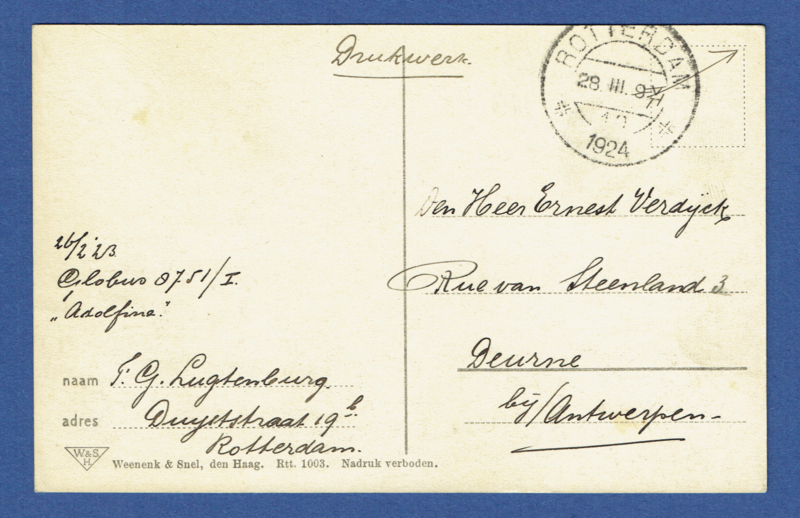 Drukwerk.
ROTTERDAM
28. III. 9
1924
Den Heer Ernest Verdijck
Rue van Steenland 3
Deurne
bij/Antwerpen-
26/2 '23
Globus 8751/I.
"Adolfine."
naam F. G. Lugtenburg.
adres Duystraat 19b
Rotterdam.
W&S
H
Weenenk & Snel, den Haag. Rtt. 1003. Nadruk verboden.